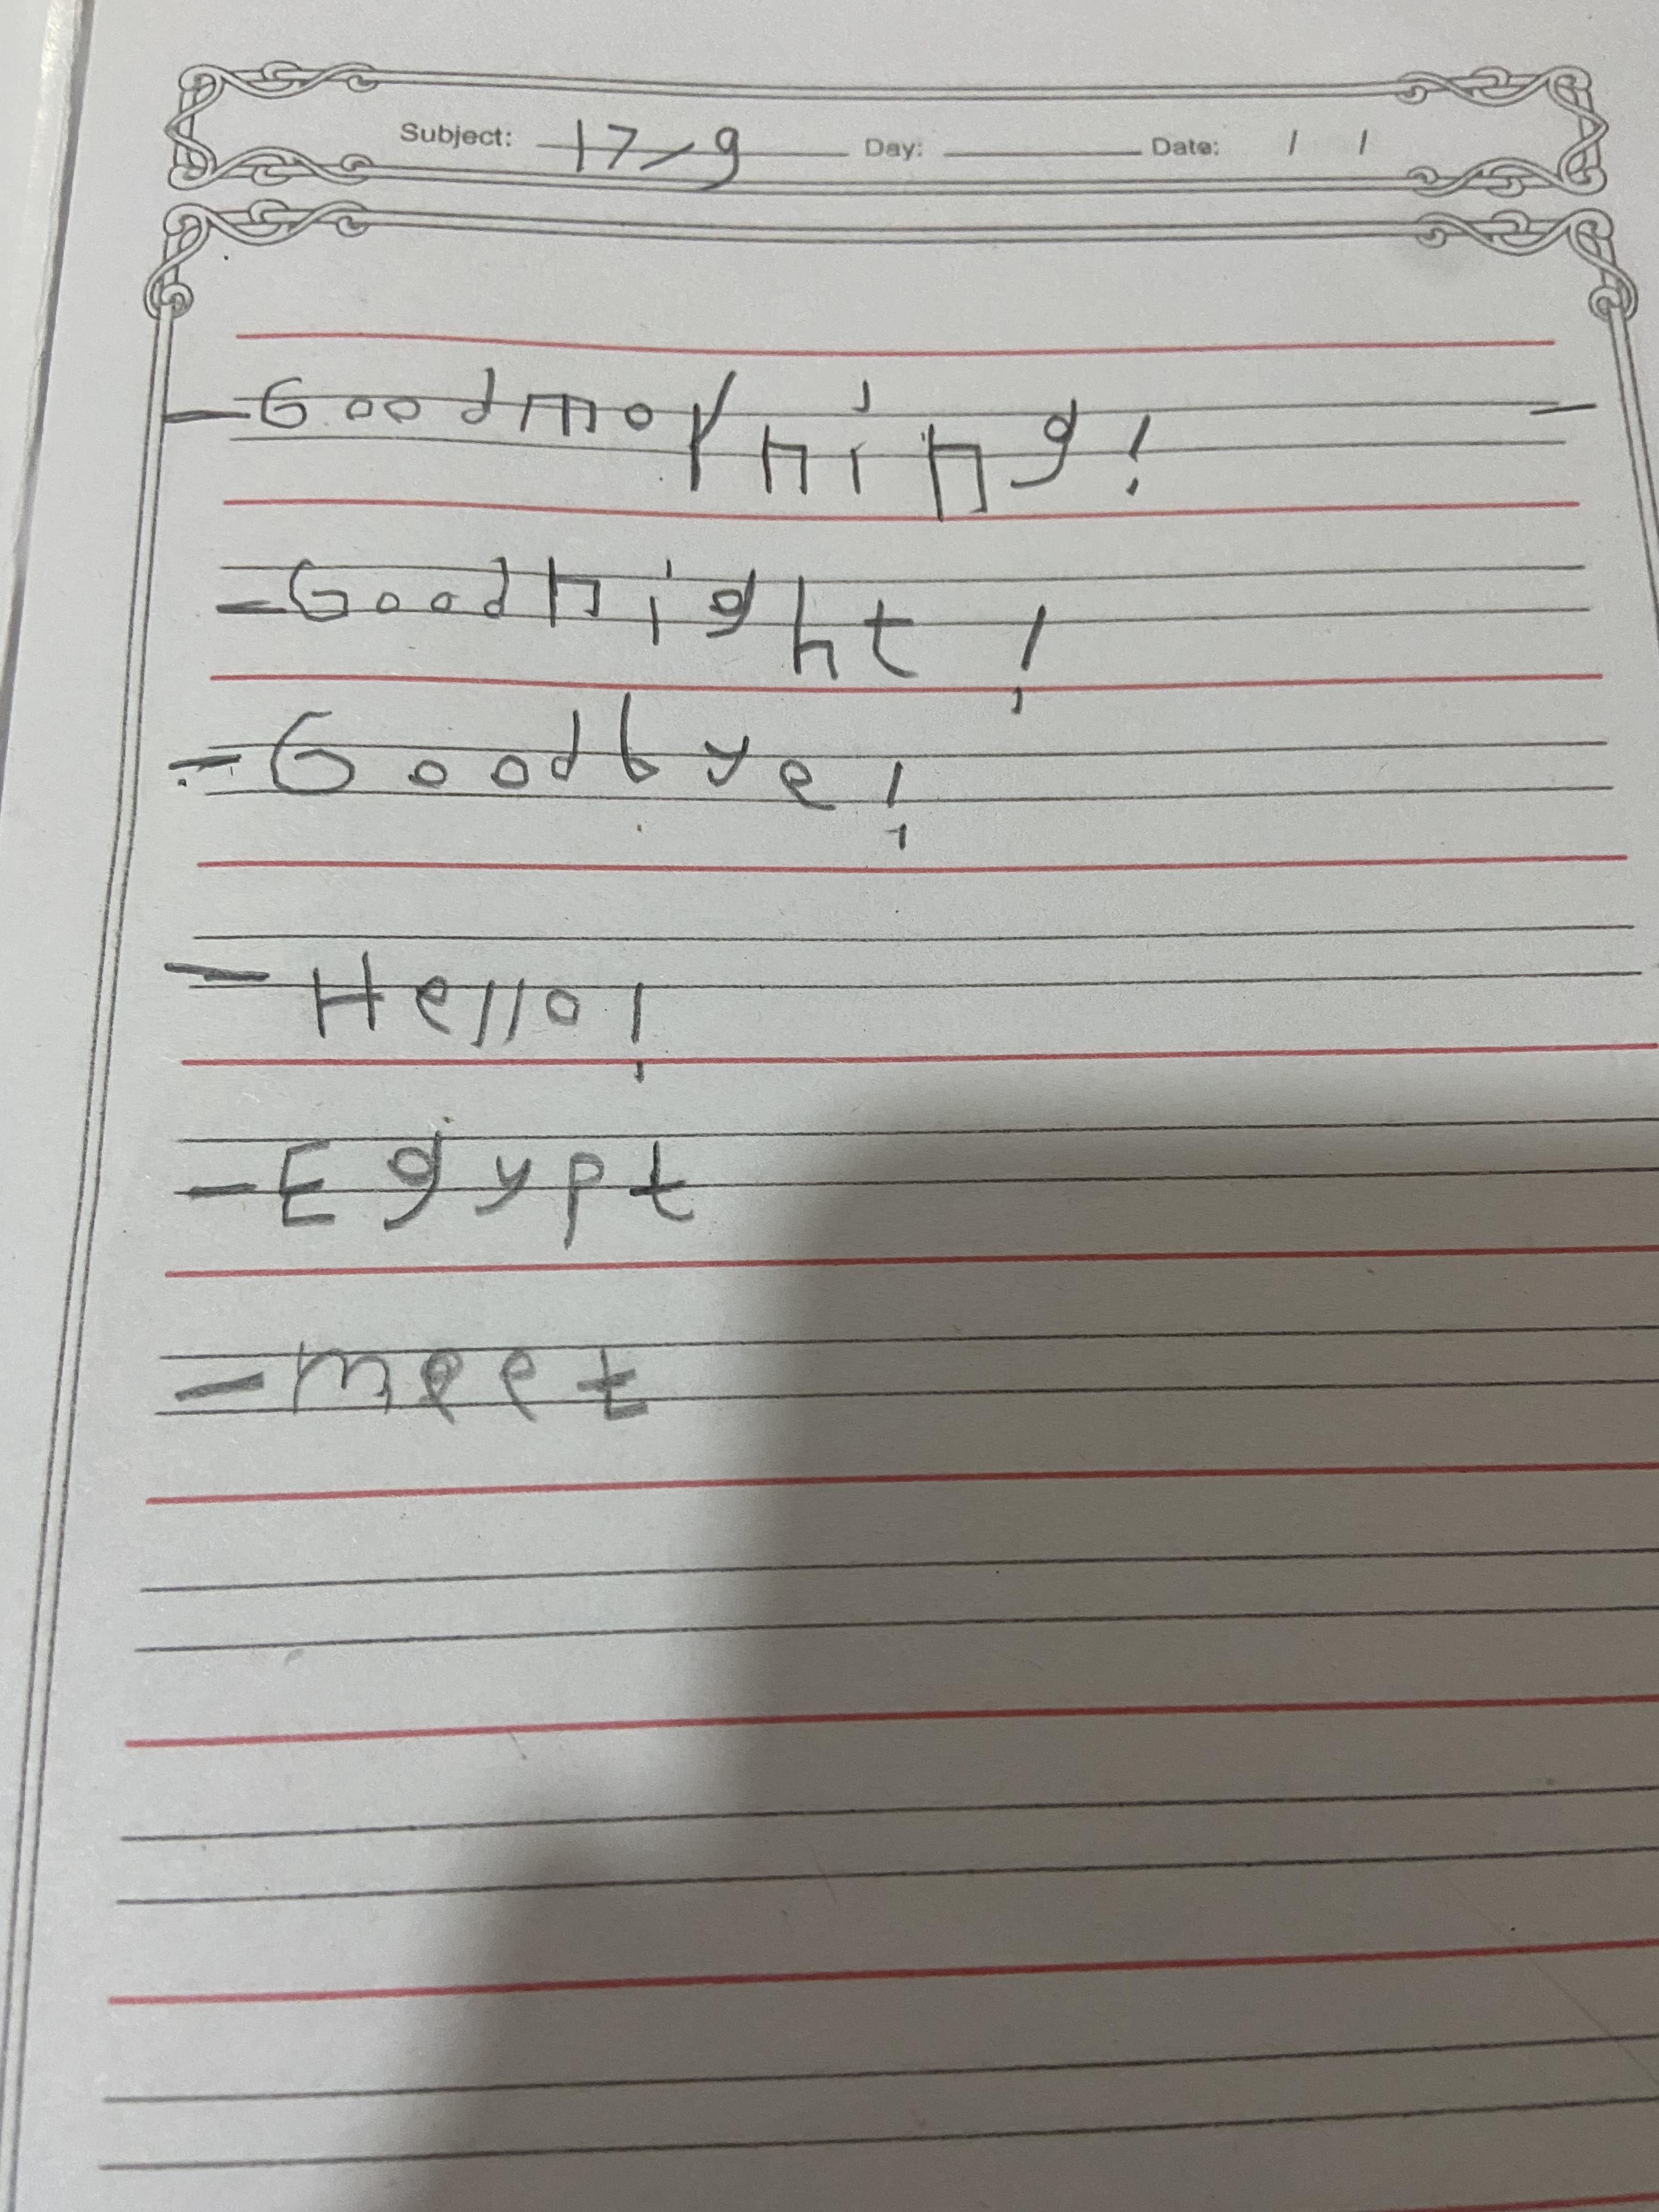 Subject: 17-9 Day: Date: / /
- Goodmorning! -
- Goodnight!
- Goodbye!
- Hello!
- Egypt
- meet